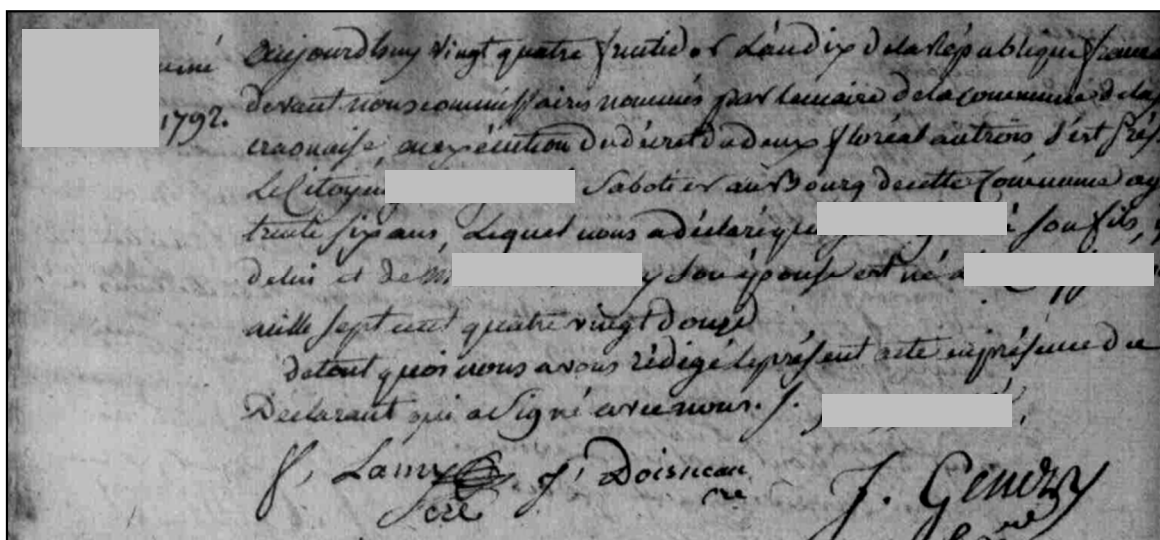 né
1792.
aujourdhuy vingt quatre fructidor L'an dix de la République
devant nous commissaires nommés par lemaire de la commune de la
craonaise, en exécution du décret du deux floréal an trois s'est
Le Citoyen Sabotier au Bourg de cette Commune
trente six ans, Lequel nous a déclaré que son fils,
de lui et de son épouse est né
mille sept cent quatre vingt douze
de tout quoi nous avons rédigé le présent acte en présence du
Déclarant qui a signé avec nous. J.
J. Doisneau
J. Gendry